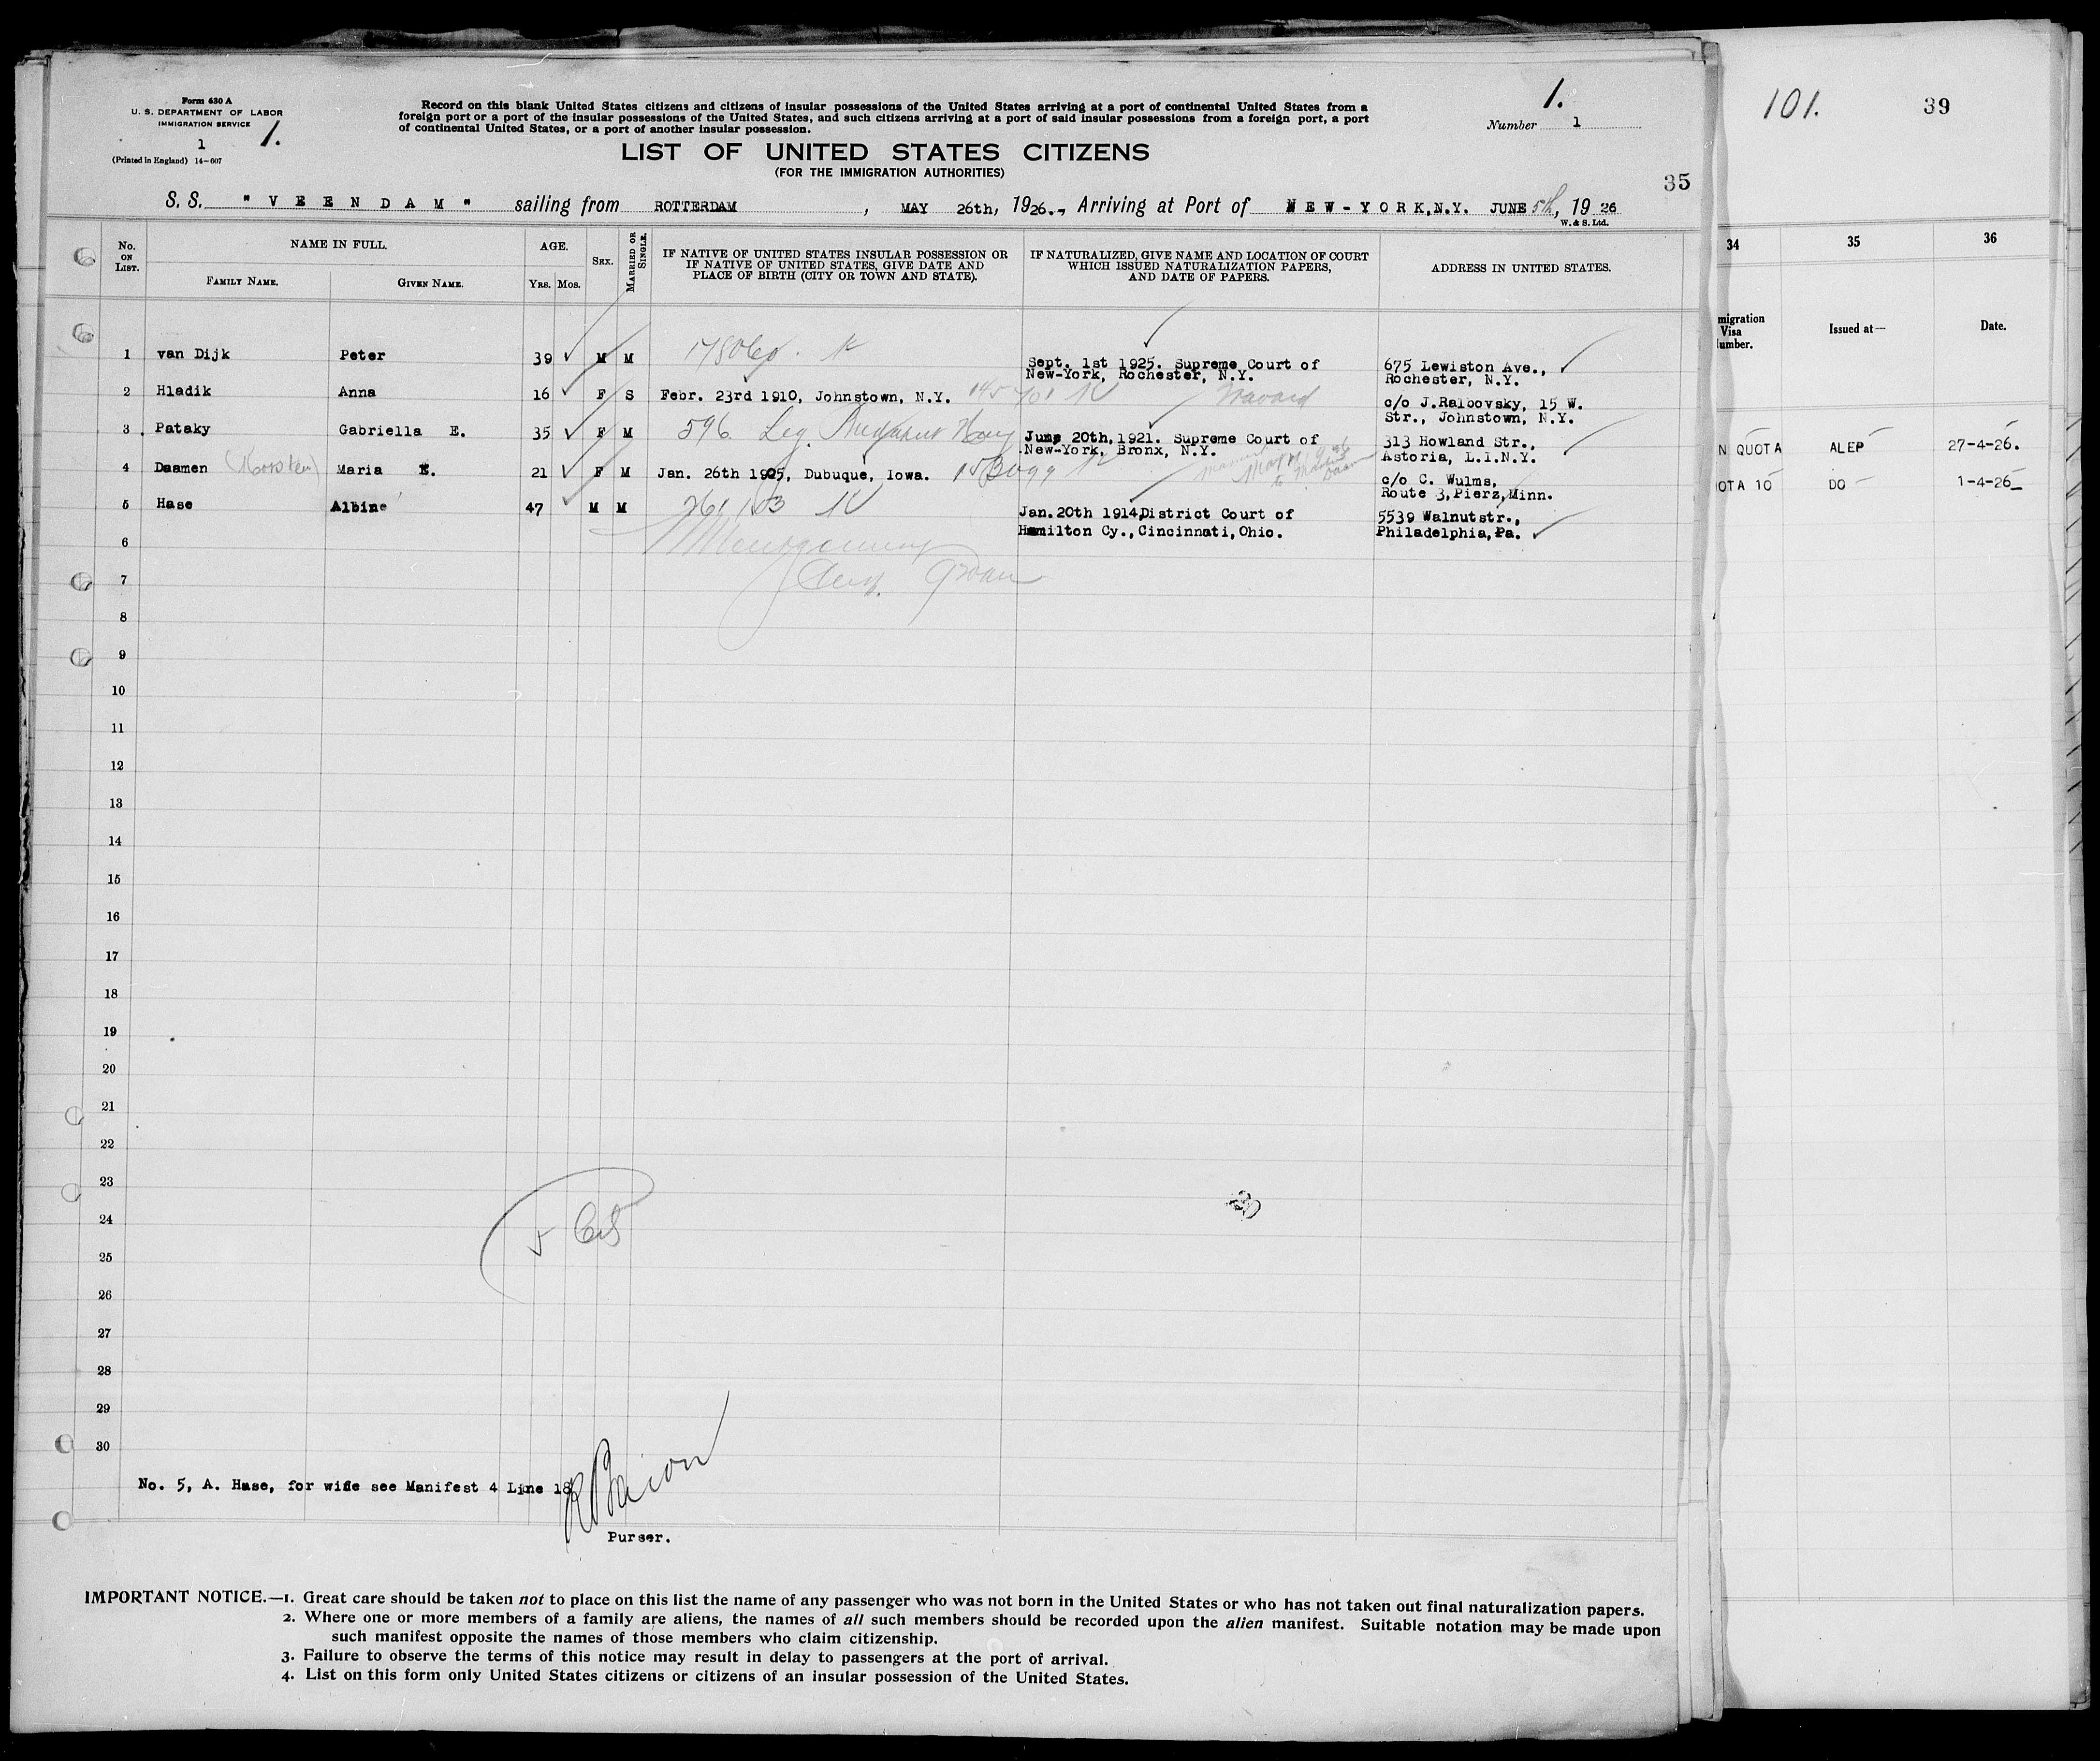 Form 630 A
U. S. DEPARTMENT OF LABOR
IMMIGRATION SERVICE
1
1.
(Printed in England) 14-607
Record on this blank United States citizens and citizens of insular possessions of the United States arriving at a port of continental United States from a
foreign port or a port of the insular possessions of the United States, and such citizens arriving at a port of said insular possessions from a foreign port, a port
of continental United States, or a port of another insular possession.
LIST OF UNITED STATES CITIZENS
(FOR THE IMMIGRATION AUTHORITIES)
1.
Number 1
35
S. S. "VEENDAM" sailing from ROTTERDAM, MAY 26th, 1926., Arriving at Port of NEW-YORK,N.Y. JUNE 5th, 19 26
W. & S. Ltd.
No. ON LIST.
NAME IN FULL.
FAMILY NAME.
GIVEN NAME.
AGE.
YRS. MOS.
SEX.
MARRIED OR SINGLE.
IF NATIVE OF UNITED STATES INSULAR POSSESSION OR
IF NATIVE OF UNITED STATES, GIVE DATE AND
PLACE OF BIRTH (CITY OR TOWN AND STATE).
IF NATURALIZED, GIVE NAME AND LOCATION OF COURT
WHICH ISSUED NATURALIZATION PAPERS,
AND DATE OF PAPERS.
ADDRESS IN UNITED STATES.
1 van Dijk Peter 39 M M
Sept. 1st 1925. Supreme Court of
New-York, Rochester, N.Y.
675 Lewiston Ave.,
Rochester, N.Y.
2 Hladik Anna 16 F S Febr. 23rd 1910, Johnstown, N.Y.
c/o J.Ralbovsky, 15 W.
Str., Johnstown, N.Y.
3 Pataky Gabriella E. 35 F M 596 Leg. Budapest Hung
June 20th, 1921. Supreme Court of
New-York, Bronx, N.Y.
313 Howland Str.,
Astoria, L.I.N.Y.
4 Daamen Maria E. 21 F M Jan. 26th 1905, Dubuque, Iowa.
c/o C. Wulms,
Route 3,Pierz,Minn.
5 Hase Albine 47 M M
Jan.20th 1914,District Court of
Hamilton Cy.,Cincinnati,Ohio.
5539 Walnutstr.,
Philadelphia,Pa.
Montgomery
6
7
8
9
10
11
12
13
14
15
16
17
18
19
20
21
22
23
24
25
26
27
28
29
30
5
No. 5, A. Hase, for wife see Manifest 4 Line 18
Purser.
IMPORTANT NOTICE.—1. Great care should be taken not to place on this list the name of any passenger who was not born in the United States or who has not taken out final naturalization papers.
2. Where one or more members of a family are aliens, the names of all such members should be recorded upon the alien manifest. Suitable notation may be made upon
such manifest opposite the names of those members who claim citizenship.
3. Failure to observe the terms of this notice may result in delay to passengers at the port of arrival.
4. List on this form only United States citizens or citizens of an insular possession of the United States.
101.
39
34 35 36
migration
Visa
umber.
Issued at—
Date.
N QUOTA ALEP 27-4-26.
OTA 10 DO 1-4-26